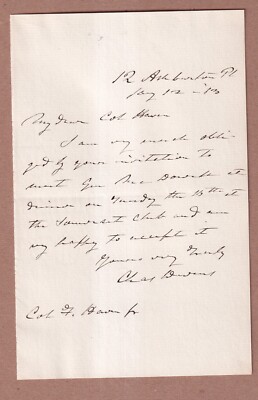 12 Ashburton Pl
Jany 12
My dear Col Haven
I am very much obli-
ged by your invitation to
meet Gen McDowell at
dinner on Tuesday the 15th at
the Somerset Club and am
very happy to accept it
Yours very truly
Chas Devens
Col F. Haven Jr